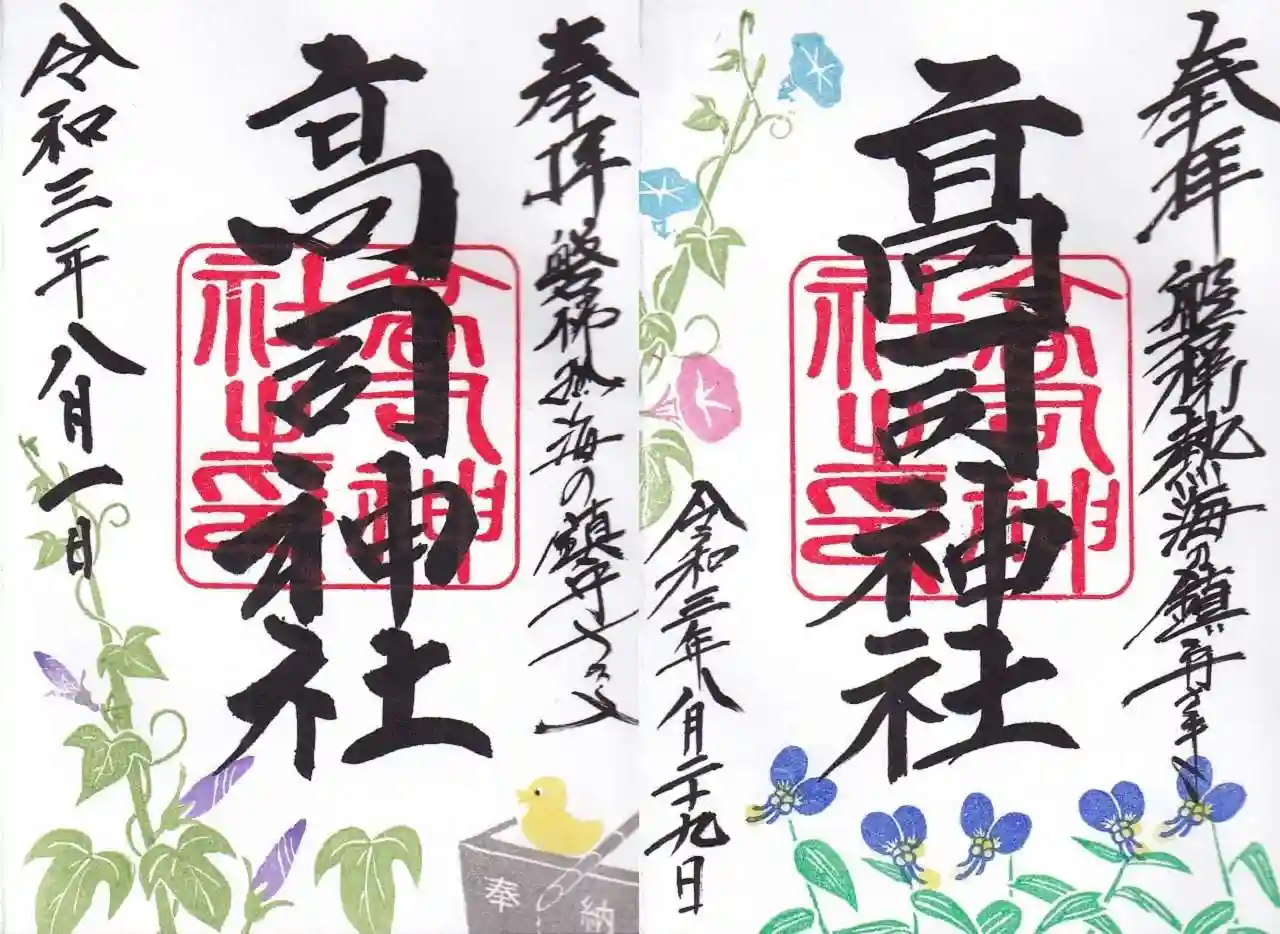 奉拝
磐梯熱海の鎮守さま
高司神社
高司神社之印
令和三年八月一日
奉納
奉拝
磐梯熱海の鎮守さま
高司神社
高司神社之印
令和三年八月二十九日